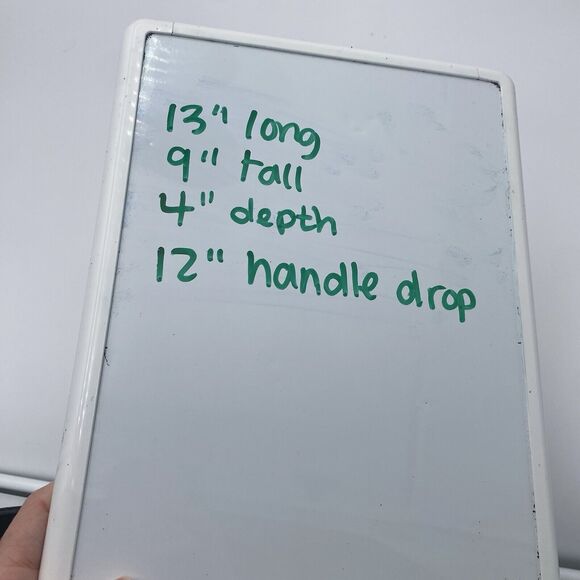 13" long
9" tall
4" depth
12" handle drop